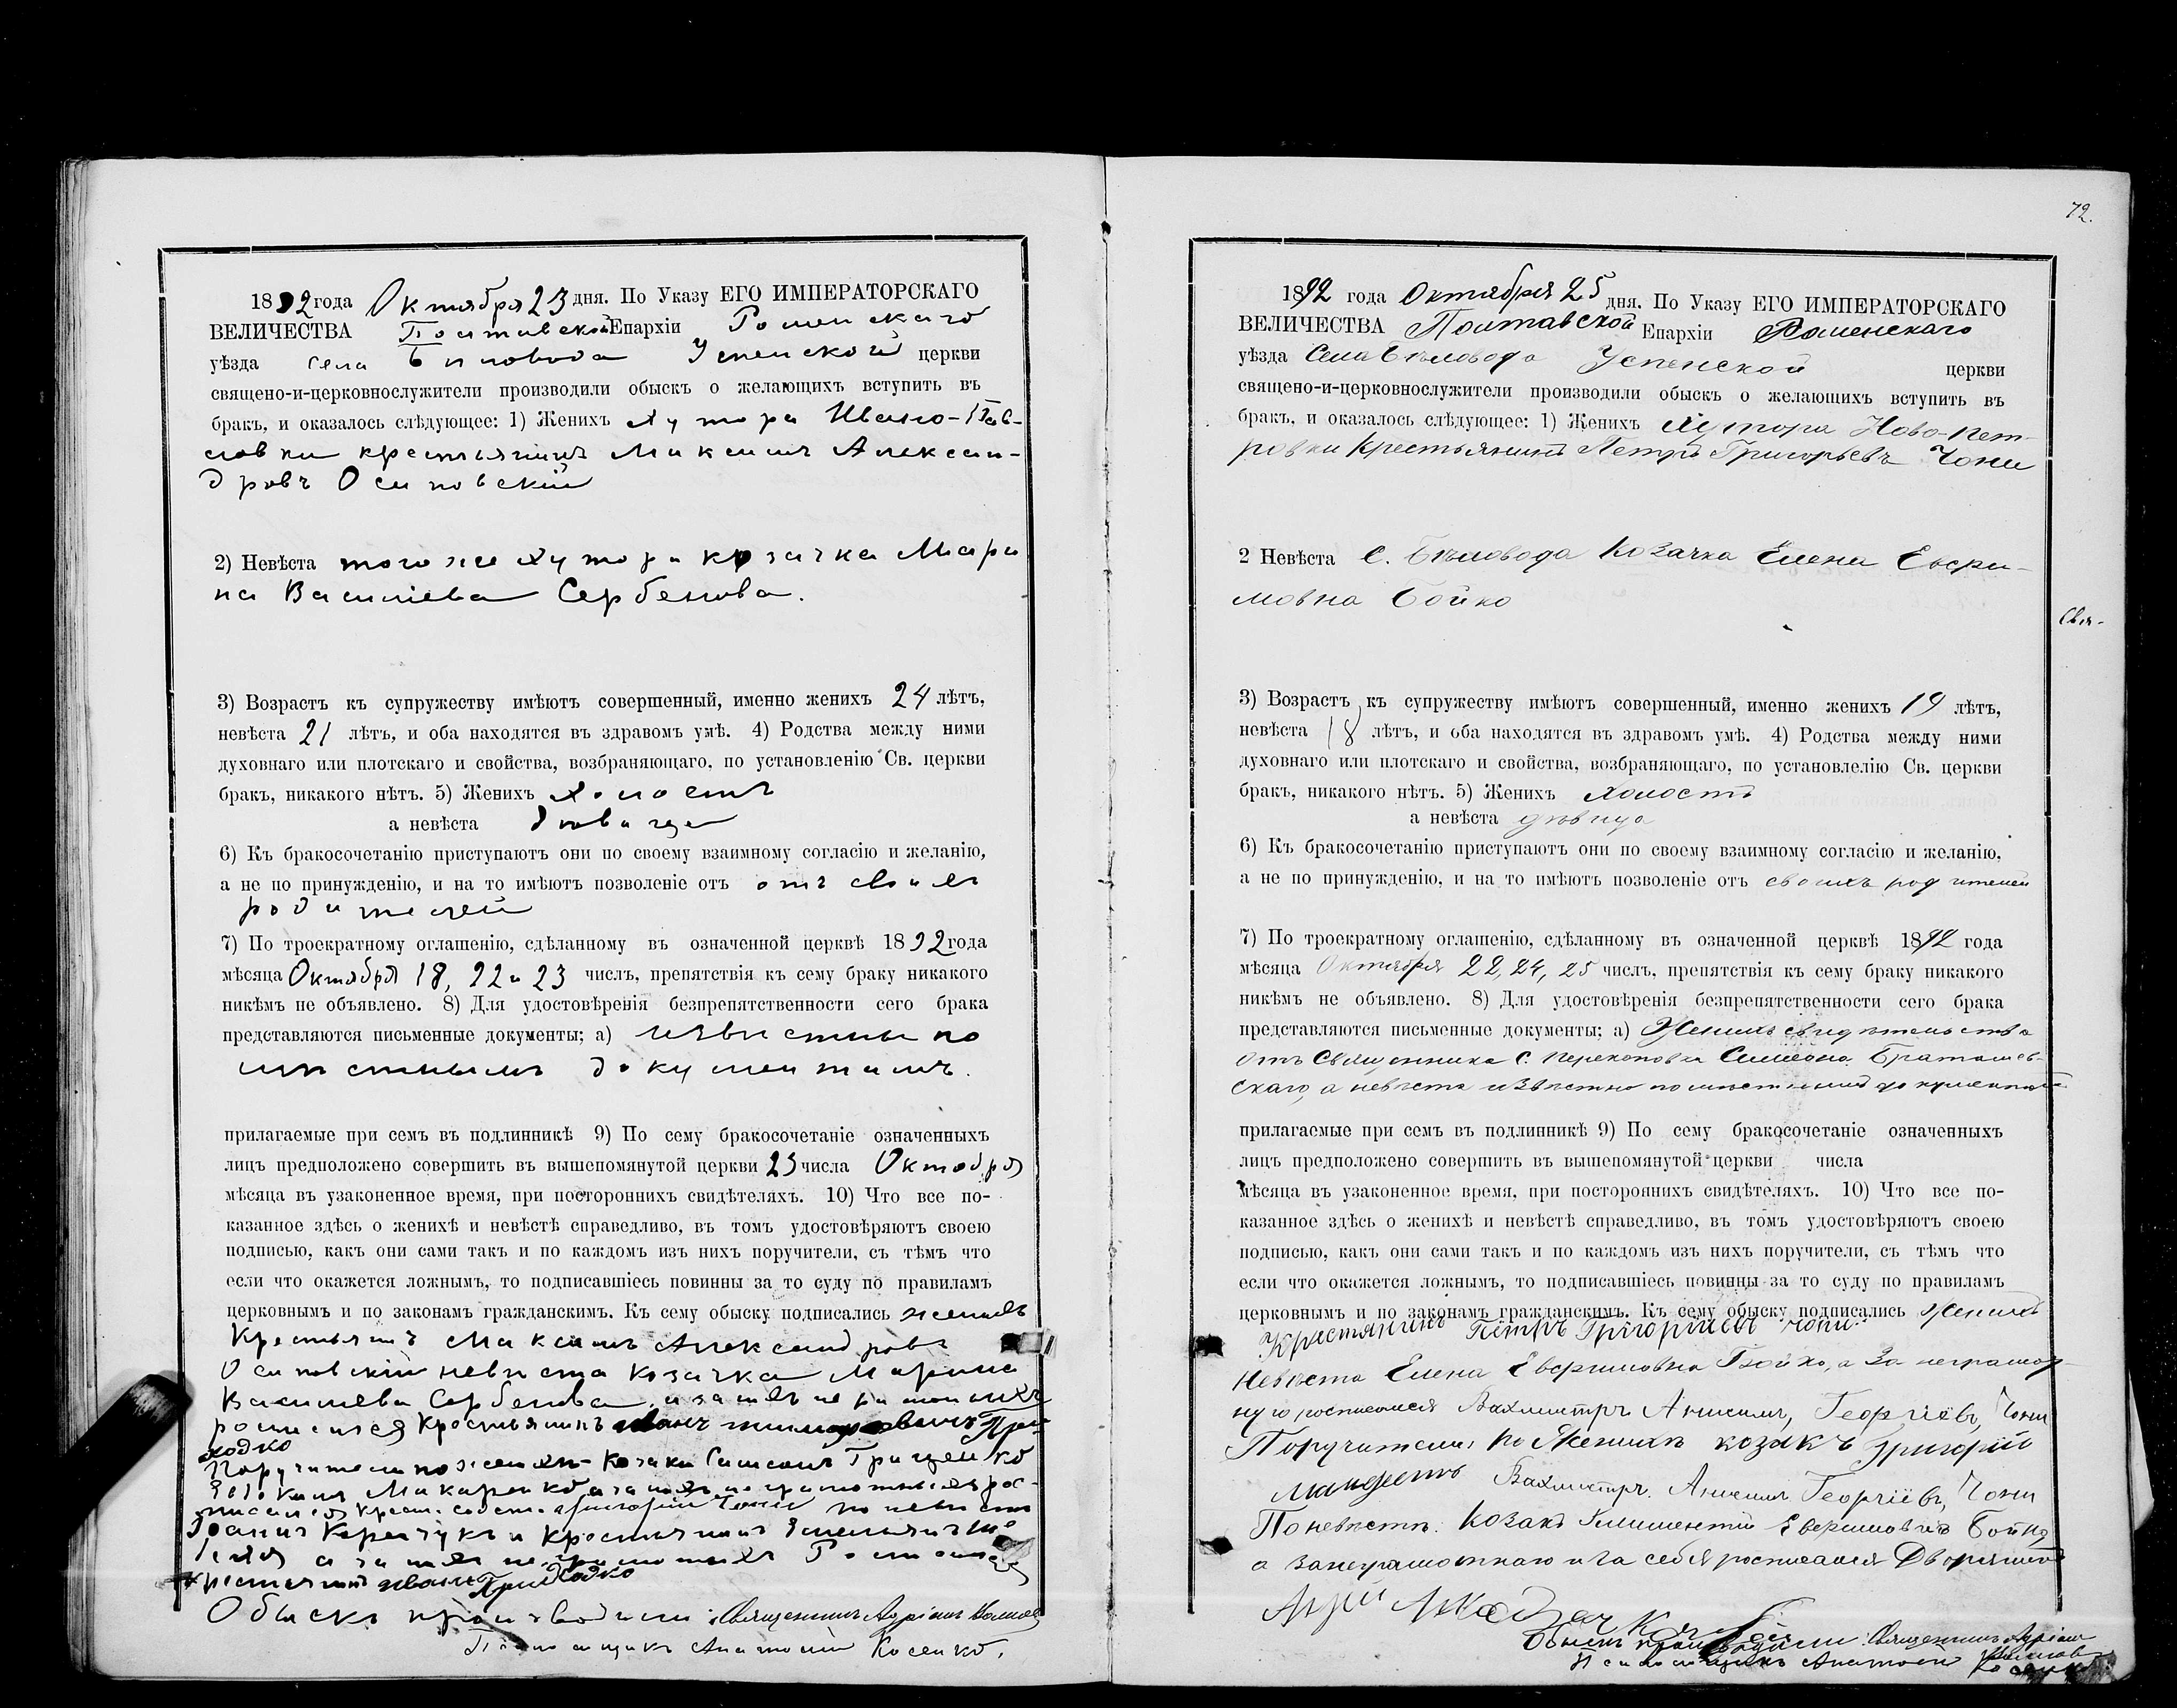 1892 года Октября 23 дня. По Указу ЕГО ИМПЕРАТОРСКАГО
ВЕЛИЧЕСТВА Полтавской Епархіи Роменскаго
уѣзда села Бѣловода Успенской церкви
священо-и-церковнослужители производили обыскъ о желающихъ вступить въ
бракъ, и оказалось слѣдующее: 1) Женихъ Хутора Ивано-Пав-
ловки крестьянинъ Максимъ Алексан-
дровъ Осиповскій
2) Невѣста того же хутора козачка Мари
на Василіева Сербенова.
3) Возрастъ къ супружеству имѣютъ совершенный, именно женихъ 24 лѣтъ,
невѣста 21 лѣтъ, и оба находятся въ здравомъ умѣ. 4) Родства между ними
духовнаго или плотскаго и свойства, возбраняющаго, по установленію Св. церкви
бракъ, никакого нѣтъ. 5) Женихъ холостъ
а невѣста дѣвица
6) Къ бракосочетанію приступаютъ они по своему взаимному согласію и желанію,
а не по принужденію, и на то имѣютъ позволеніе отъ отъ своихъ
родителей
7) По троекратному оглашенію, сдѣланному въ означенной церквѣ 1892 года
мѣсяца Октября 18, 22 и 23 числъ, препятствія къ сему браку никакого
никѣмъ не объявлено. 8) Для удостовѣренія безпрепятственности сего брака
представляются письменные документы; а) извѣстны по
мѣстнымъ документамъ.
прилагаемые при семъ въ подлинникѣ 9) По сему бракосочетаніе означенныхъ
лицъ предположено совершить въ вышепомянутой церкви 23 числа Октября
мѣсяца въ узаконенное время, при постороннихъ свидѣтеляхъ. 10) Что все по-
казанное здѣсь о женихѣ и невѣстѣ справедливо, въ томъ удостовѣряютъ своею
подписью, какъ они сами такъ и по каждомъ изъ нихъ поручители, съ тѣмъ что
если что окажется ложнымъ, то подписавшіесь повинны за то суду по правиламъ
церковнымъ и по законамъ гражданскимъ. Къ сему обыску подписались женихъ
Крестьянинъ Максимъ Александровъ
Осиповскій невѣста козачка Марина
Василіева Сербенова, а за нихъ неграмотныхъ
росписался Крестьянинъ Иванъ При-
ходко
Поручители по женихѣ Козаки Симеонъ Гриценко
Макаренко а за нихъ неграмотныхъ рос-
писался крест. собст. Григорій Чони по невѣстѣ
и крестьянинъ Емельянъ
а за нихъ неграмотныхъ Росписался
крестянинъ иванъ Приходко
Обыскъ производили: Священникъ Адріанъ
Псаломщикъ Анатолій Косенко.
72.
1892 года Октября 25 дня. По Указу ЕГО ИМПЕРАТОРСКАГО
ВЕЛИЧЕСТВА Полтавской Епархіи Роменскаго
уѣзда Села Бѣловода Успенской церкви
священо-и-церковнослужители производили обыскъ о желающихъ вступить въ
бракъ, и оказалось слѣдующее: 1) Женихъ Хутора Ново-Пет-
ровки Крестьянинъ Петръ Григорьевъ Чони
2 Невѣста С. Бѣловода Козачка Елена Евфи-
мовна Бойко
Свя-
3) Возрастъ къ супружеству имѣютъ совершенный, именно женихъ 19 лѣтъ,
невѣста 18 лѣтъ, и оба находятся въ здравомъ умѣ. 4) Родства между ними
духовнаго или плотскаго и свойства, возбраняющаго, по установлелію Св. церкви
бракъ, никакого нѣтъ. 5) Женихъ холостъ
а невѣста дѣвица
6) Къ бракосочетанію приступаютъ они по своему взаимному согласію и желанію,
а не по принужденію, и на то имѣютъ позволеніе отъ своихъ родителей
7) По троекратному оглашенію, сдѣланному въ означенной церквѣ 1892 года
мѣсяца Октября 22, 24, 25 числъ, препятствія къ сему браку никакого
никѣмъ не объявлено. 8) Для удостовѣренія безпрепятственности сего брака
представляются письменные документы; а) Женихъ свидѣтельства
отъ Священника С. Перекоповки Симеона Братошев-
скаго, а невѣста извѣстно по мѣстнымъ документамъ
прилагаемые при семъ въ подлинникѣ 9) По сему бракосочетаніе означенныхъ
лицъ предположено совершить въ вышепомянутой церкви числа
мѣсяца въ узаконенное время, при постороннихъ свидѣтеляхъ. 10) Что все по-
казанное здѣсь о женихѣ и невѣстѣ справедливо, въ томъ удостовѣряютъ своею
подписью, какъ они сами такъ и по каждомъ изъ нихъ поручители, съ тѣмъ что
если что окажется ложнымъ, то подписавшіесь повинны за то суду по правиламъ
церковнымъ и по законамъ гражданскимъ. Къ сему обыску подписались Женихъ
Кристянинъ Пітръ Грігорііевъ Чони
Невѣста Елена Евфимовна Бойко, а за неграмот-
ную росписался Вахмистръ Анисимъ Георгіевъ Чони
Поручители: по Женихѣ козакъ Григорій
Вахмистръ Анисимъ Георгіевъ Чони
По невѣстѣ: Козакъ Климентій Евфимовичъ Бойко,
а за неграмотнаго и за себя росписался Дворянинъ
Обыскъ производили: Священникъ Адріанъ
Псаломщикъ Анатолій Косенко